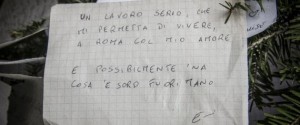 UN LAVORO SERIO, CHE
MI PERMETTA DI VIVERE,
A ROMA COL MIO AMORE
E POSSIBILMENTE 'NA
COSA 'E SORD FUORI MANO.